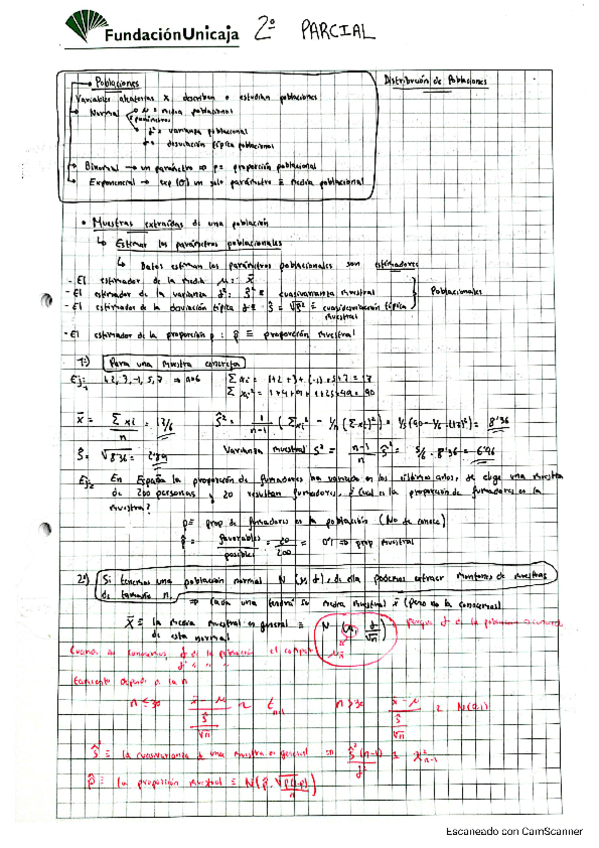 FundaciónUnicaja 2º PARCIAL
Distribución de Poblaciones
Poblaciones
Variables aleatorias X describen o estudian poblaciones
Normal μ = media poblacional
parámetros
σ² = varianza poblacional
σ = desviación típica poblacional
Binomial → un parámetro ⇒ p = proporción poblacional
Exponencial → exp(σ) un solo parámetro ≡ media poblacional
• Muestras extraídas de una población
↳ Estimar los parámetros poblacionales
↳ Datos estiman los parámetros poblacionales son estimadores
- El estimador de la media μ: x̄
- El estimador de la varianza σ²: ŝ² ≡ cuasivarianza muestral
Poblacionales
- El estimador de la desviación típica σ: ŝ = √ŝ² ≡ cuasidesviación típica
muestral
- El estimador de la proporción p: p̂ ≡ proporción muestral
1º) Para una muestra concreta
Ej: 1, 2, 3, -1, 5, 7 ⇒ n=6 Σxi = 1+2+3+(-1)+5+7 = 17
Σxi² = 1+4+9+1+25+49 = 90
x̄ = Σxi/n = 17/6 ŝ² = 1/(n-1) (Σxi² - 1/n (Σxi)²) = 1/5 (90 - 1/6 · (17)²) = 8'36
ŝ = √8'36 = 2'89 Varianza muestral s² = (n-1)/n ŝ² = 5/6 · 8'36 = 6'96
Ej: En España la proporción de fumadores ha variado en los últimos años, se elige una muestra
de 200 personas y 20 resultan fumadores. ¿Cuál es la proporción de fumadores en la
muestra?
p ≡ prop de fumadores en la población (No se conoce)
p̂ = favorables/posibles = 20/200 = 0'1 ⇒ prop muestral
2º) Si tenemos una población normal N(μ, σ), de ella podemos extraer montones de muestras
de tamaño n.
⇒ cada una tendrá su media muestral x̄ (pero no la conocemos)
x̄ ≡ la media muestral en general ≡ N(μ, σ/√n) porque σ de la
de esta normal
Cuando no conocemos σ de la población el
depende de la n
n ≤ 30 (x̄ - μ)/(ŝ/√n) ~ t n-1 n > 30 (x̄ - μ)/(ŝ/√n) ~ N(0,1)
ŝ² ≡ la cuasivarianza de una muestra en general ⇒ ŝ²(n-1)/σ² ~ χ² n-1
p̂ ≡ la proporción muestral ≡ N(p, √(p(1-p)/n))
Escaneado con CamScanner